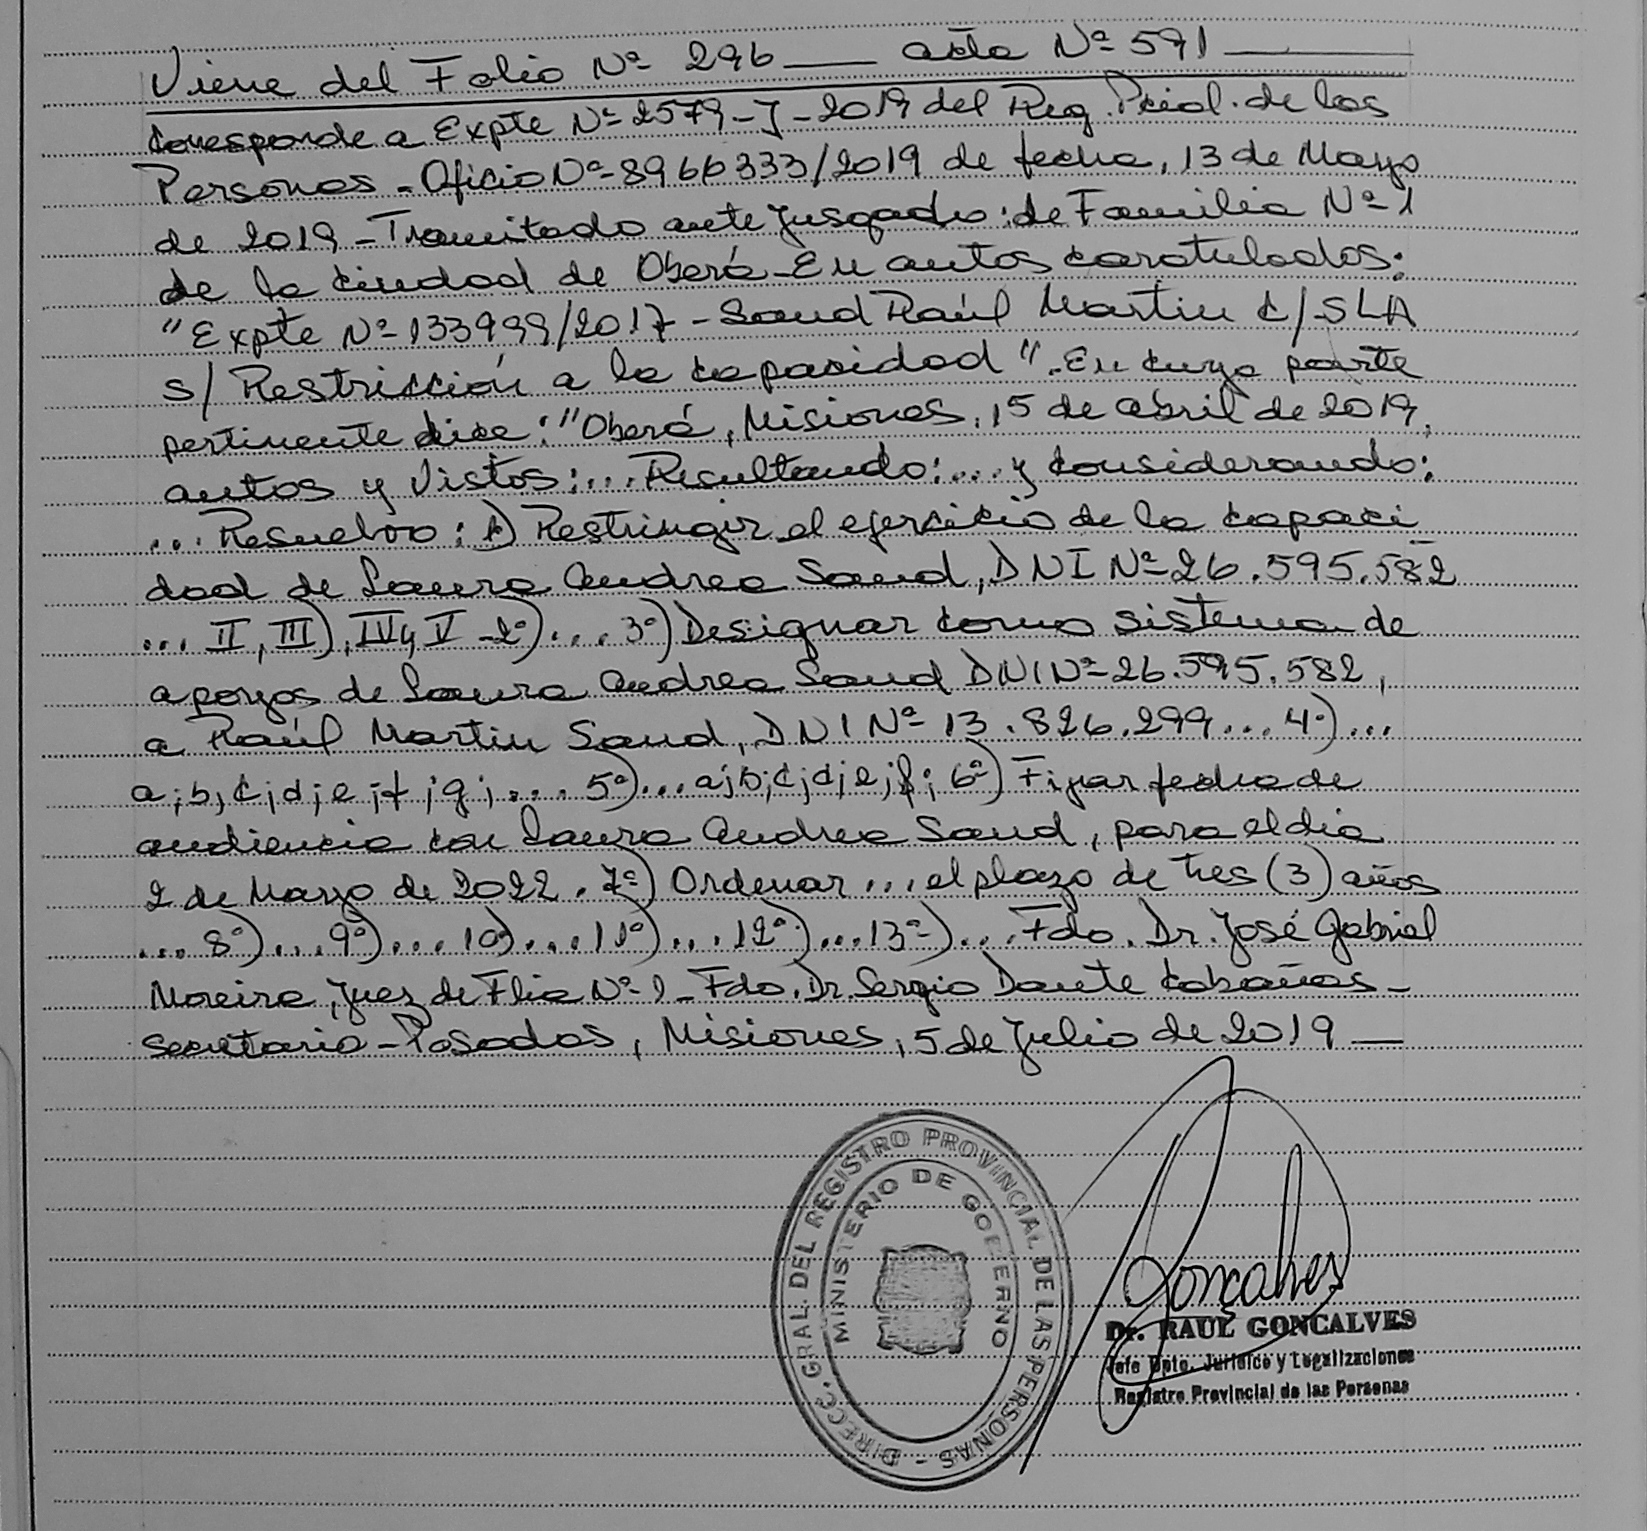 Viene del Folio Nº 296 — acta Nº 591 —
Corresponde a Expte Nº 2579-J-2019 del Reg. Pcial. de las
Personas - Oficio Nº 8966333/2019 de fecha, 13 de Mayo
de 2019 - Tramitado ante Jusgado: de Familia Nº 1
de la ciudad de Oberá - En autos caratulados:
"Expte Nº 133999/2017 - Saud Raúl Martin c/ SLA
s/ Restricción a la capacidad". En cuya parte
pertinente dice: "Oberá, Misiones, 15 de abril de 2019.
autos y Vistos:... Resultando:... y Considerando:
... Resuelvo: 1) Restringir el ejercicio de la capaci
dad de Laura Andrea Saud, DNI Nº 26.595.582
... II, III), IV y V - 2º).... 3º) Designar como sistema de
apoyos de Laura Andrea Saud DNI Nº 26.595.582,
a Raúl Martin Saud, DNI Nº 13.826.299... 4º)...
a;b;c;d;e;f;g;.... 5º)... a;b;c;d;e;f; 6º) Fijar fecha de
audiencia con Laura Andrea Saud, para el dia
2 de Mayo de 2022. 7º) Ordenar... el plazo de tres (3) años
... 8º)... 9º).... 10º).... 11º)... 12º)... 13º)... Fdo. Dr. José Gabriel
Moreira, Juez de Flia Nº 1 - Fdo. Dr. Sergio Dante Cabañas -
Secretario - Posadas, Misiones, 5 de Julio de 2019 —
DIRECC. GRAL. DEL REGISTRO PROVINCIAL DE LAS PERSONAS -
MINISTERIO DE GOBIERNO
Goncalves
Dr. RAUL GONCALVES
Jefe Dpto. Jurídico y Legalizaciones
Registro Provincial de las Personas